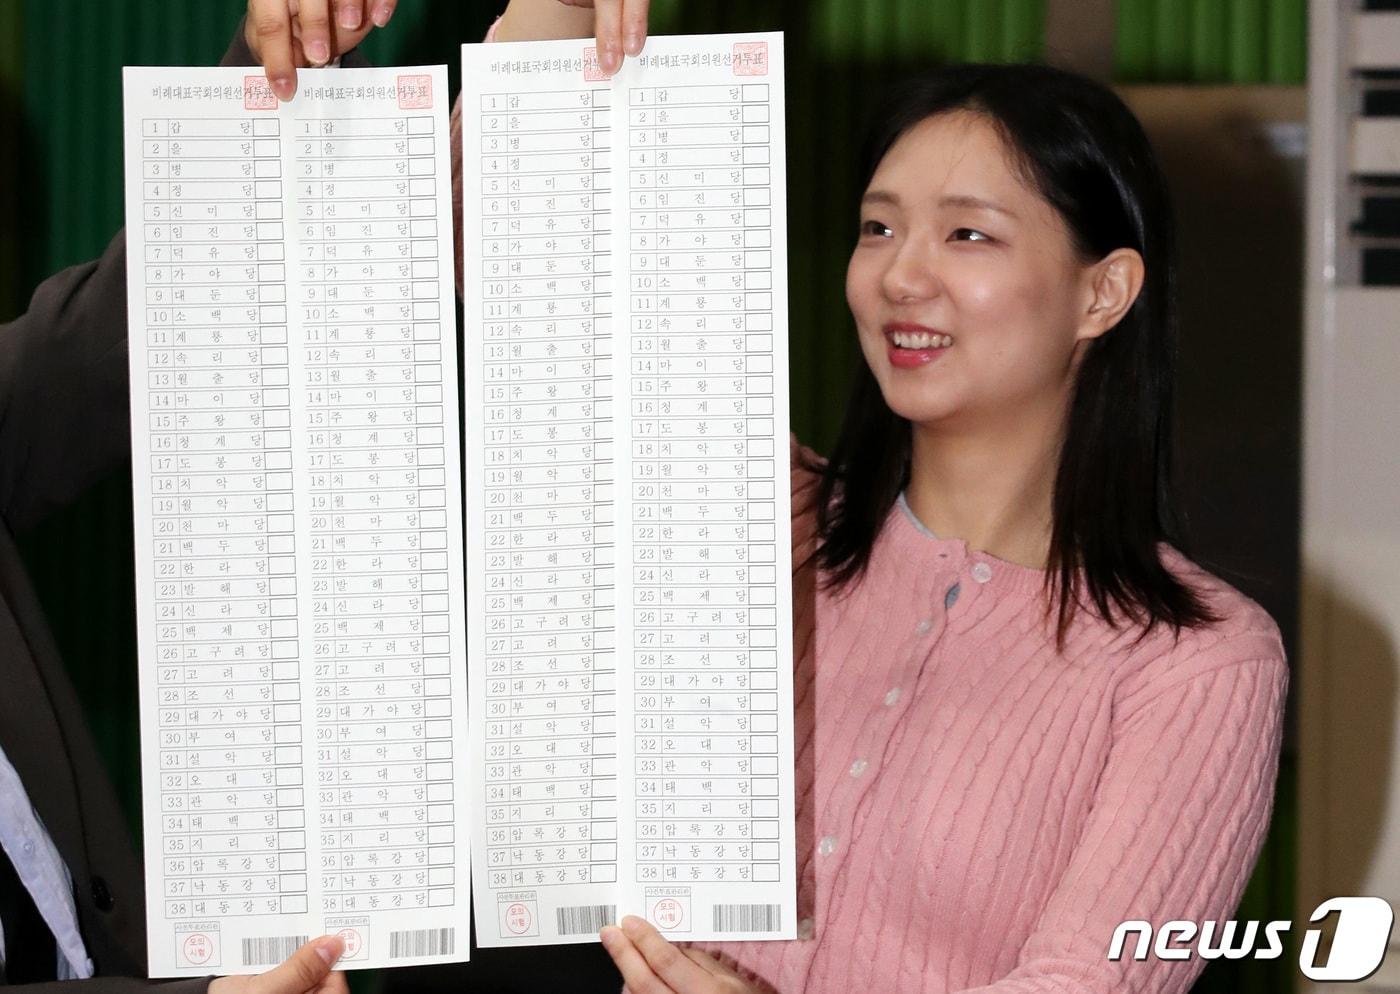 비례대표국회의원선거투표
1 갑 당
2 을 당
3 병 당
4 정 당
5 신 미 당
6 임 진 당
7 덕 유 당
8 가 야 당
9 대 둔 당
10 소 백 당
11 계 룡 당
12 속 리 당
13 월 출 당
14 마 이 당
15 주 왕 당
16 청 계 당
17 도 봉 당
18 치 악 당
19 월 악 당
20 천 마 당
21 백 두 당
22 한 라 당
23 발 해 당
24 신 라 당
25 백 제 당
26 고 구 려 당
27 고 려 당
28 조 선 당
29 대 가 야 당
30 부 여 당
31 설 악 당
32 오 대 당
33 관 악 당
34 태 백 당
35 지 리 당
36 압 록 강 당
37 낙 동 강 당
38 대 동 강 당
사전투표관리관
모의
시험
비례대표국회의원선거투표
1 갑 당
2 을 당
3 병 당
4 정 당
5 신 미 당
6 임 진 당
7 덕 유 당
8 가 야 당
9 대 둔 당
10 소 백 당
11 계 룡 당
12 속 리 당
13 월 출 당
14 마 이 당
15 주 왕 당
16 청 계 당
17 도 봉 당
18 치 악 당
19 월 악 당
20 천 마 당
21 백 두 당
22 한 라 당
23 발 해 당
24 신 라 당
25 백 제 당
26 고 구 려 당
27 고 려 당
28 조 선 당
29 대 가 야 당
30 부 여 당
31 설 악 당
32 오 대 당
33 관 악 당
34 태 백 당
35 지 리 당
36 압 록 강 당
37 낙 동 강 당
38 대 동 강 당
사전투표관리관
모의
시험
비례대표국회의원선거투
1 갑 당
2 을 당
3 병 당
4 정 당
5 신 미 당
6 임 진 당
7 덕 유 당
8 가 야 당
9 대 둔 당
10 소 백 당
11 계 룡 당
12 속 리 당
13 월 출 당
14 마 이 당
15 주 왕 당
16 청 계 당
17 도 봉 당
18 치 악 당
19 월 악 당
20 천 마 당
21 백 두 당
22 한 라 당
23 발 해 당
24 신 라 당
25 백 제 당
26 고 구 려 당
27 고 려 당
28 조 선 당
29 대 가 야 당
30 부 여 당
31 설 악 당
32 오 대 당
33 관 악 당
34 태 백 당
35 지 리 당
36 압 록 강 당
37 낙 동 강 당
38 대 동 강 당
사전투표관리관
모의
시험
비례대표국회의원선거투표
1 갑 당
2 을 당
3 병 당
4 정 당
5 신 미 당
6 임 진 당
7 덕 유 당
8 가 야 당
9 대 둔 당
10 소 백 당
11 계 룡 당
12 속 리 당
13 월 출 당
14 마 이 당
15 주 왕 당
16 청 계 당
17 도 봉 당
18 치 악 당
19 월 악 당
20 천 마 당
21 백 두 당
22 한 라 당
23 발 해 당
24 신 라 당
25 백 제 당
26 고 구 려 당
27 고 려 당
28 조 선 당
29 대 가 야 당
30 부 여 당
31 설 악 당
32 오 대 당
33 관 악 당
34 태 백 당
35 지 리 당
36 압 록 강 당
37 낙 동 강 당
38 대 동 강 당
사전투표관리관
모의
시험
news1